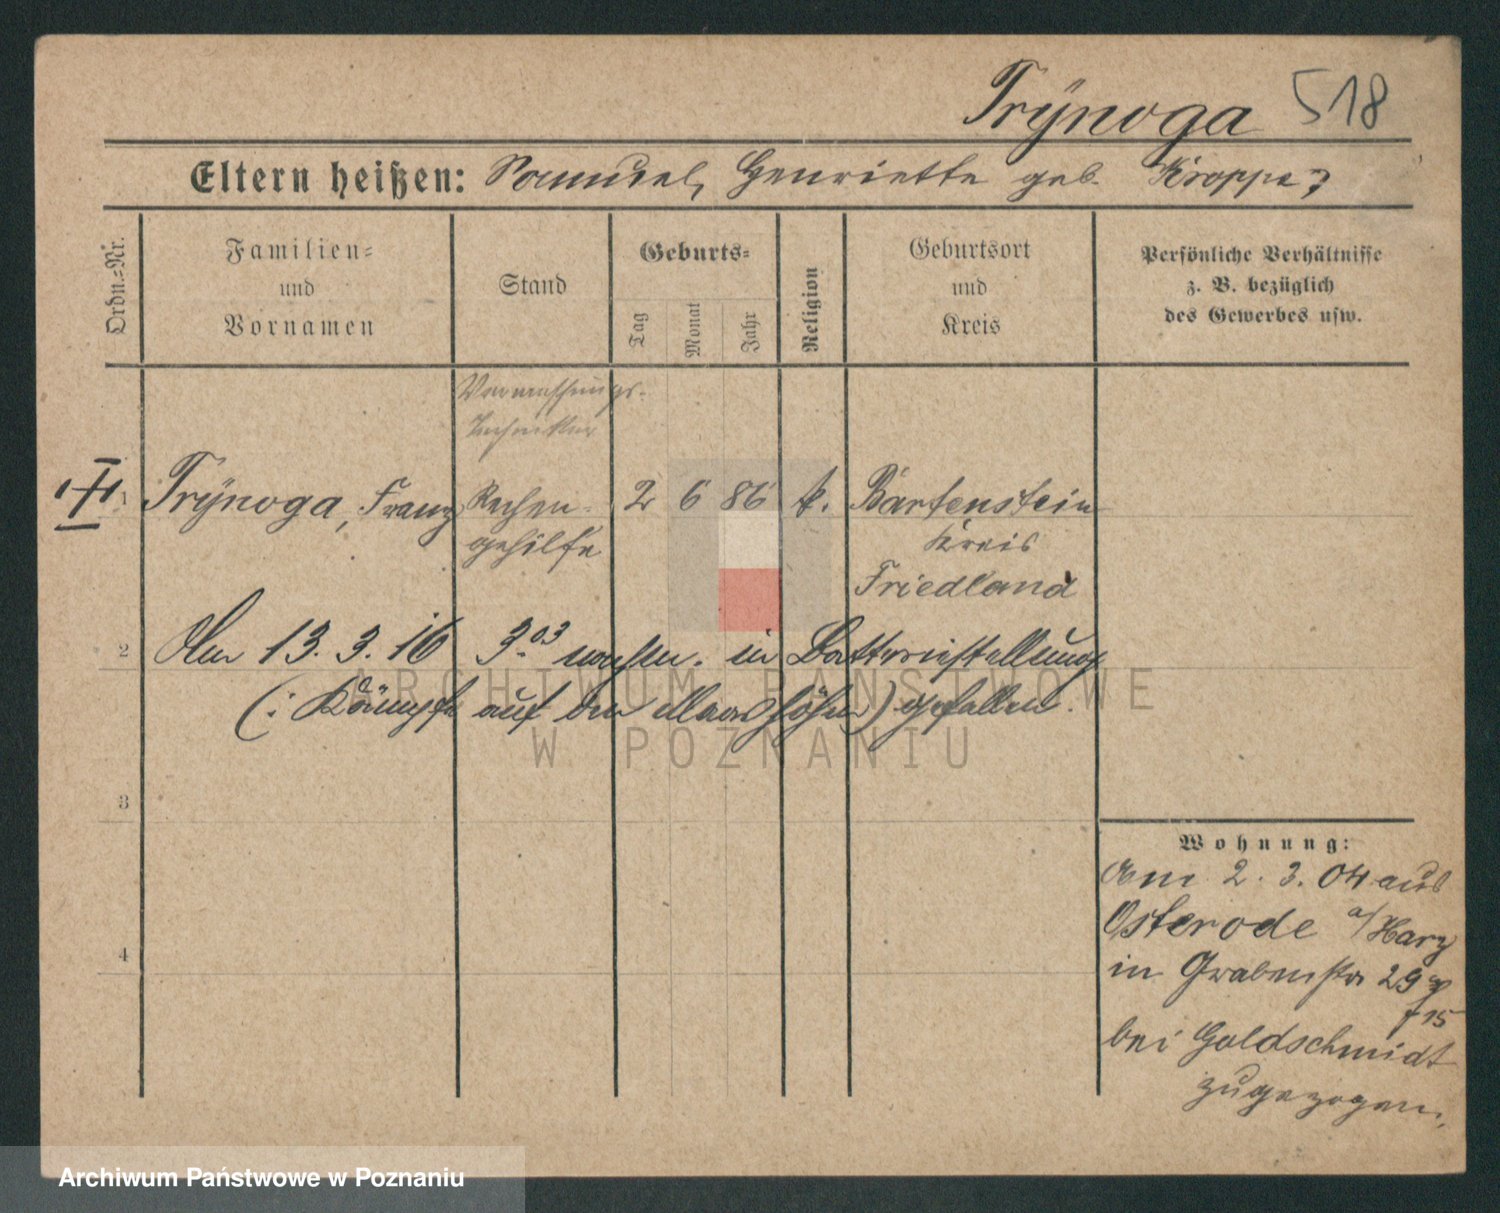 Trÿnoga 518
Eltern heißen: Samuel, Henriette geb. Kroppe
Ordn.=Nr.
Familien=
und
Vornamen
Stand
Geburts=
Tag
Monat
Jahr
Religion
Geburtsort
und
Kreis
Persönliche Verhältnisse
z. B. bezüglich
des Gewerbes usw.
Vermessungs-
techniker
1 Trÿnoga, Franz Rechen- 2 6 86 k. Bartenstein
gehilfe Kreis
Friedland
2 Am 13. 3. 16 3.03 nachm. in Batteriestellung
(: Kämpfe auf den Maashöhen) gefallen.
ARCHIWUM PAŃSTWOWE
W POZNANIU
3
4
Wohnung:
Am 2. 3. 04 aus
Osterode a/Harz
in Grabenstr 29
f 15
bei Goldschmidt
zugezogen.
Archiwum Państwowe w Poznaniu